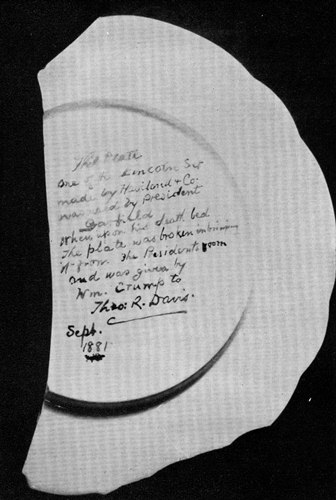 This Plate
One of the Lincoln Set
made by Haviland & Co.
was used by President
Garfield
When upon his death bed
The plate was broken in bringing
it from the Presidents room
and was given by
Wm. Crump to
Theo: R. Davis.
Sept.
1881